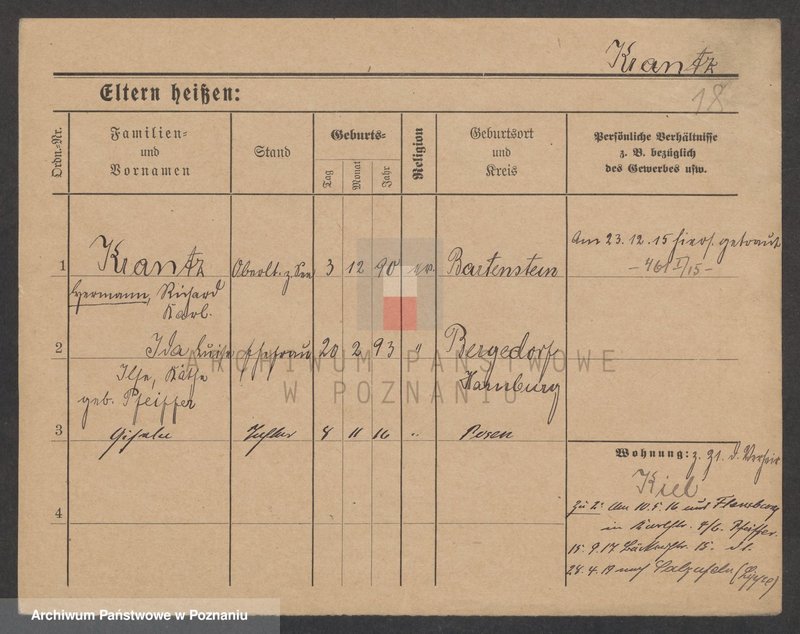 Krantz
18
Eltern heißen:
Ordn.-Nr.
Familien-
und
Vornamen
Stand
Geburts-
Tag
Monat
Jahr
Religion
Geburtsort
und
Kreis
Persönliche Verhältnisse
z. B. bezüglich
des Gewerbes usw.
1
Krantz
Oberlt. z. See
3
12
90
ev.
Bartenstein
Am 23.12.15 hiers. getraut
Hermann, Richard
Karl.
2
Ida Luise
Ehefrau
20
2
93
"
Bergedorf
Hamburg
Ilse, Käthe
geb. Pfeiffer
3
Gisela
Tochter
8
11
16
"
Posen
4
Wohnung: z. Zt. d.
Kiel
zu 2: Am 10.5.16 aus Flensburg
in 4/6. Pfeiffer.
15.9.17 15.
28.4.19 nach Salzuflen (Lippe)
ARCHIWUM PAŃSTWOWE
W POZNANIU
Archiwum Państwowe w Poznaniu